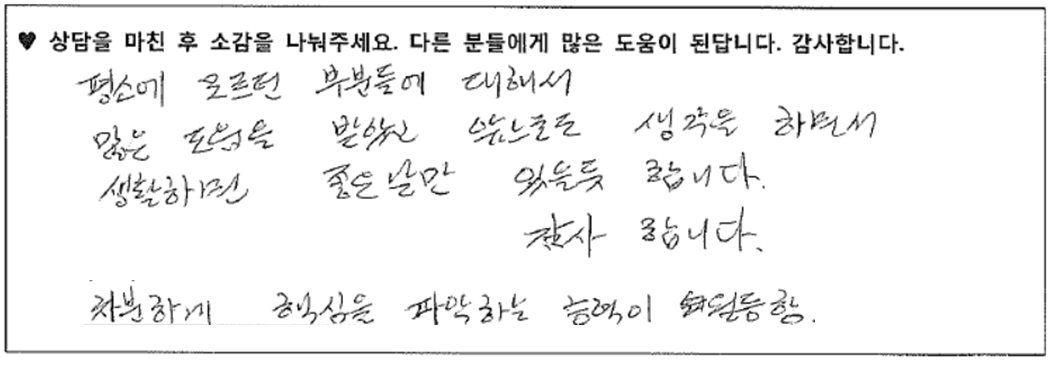 ♥ 상담을 마친 후 소감을 나눠주세요. 다른 분들에게 많은 도움이 된답니다. 감사합니다.
평소에 모르던 부분들에 대해서
많은 도움을 받았고 앞으로도 생각을 하면서
생활하면 좋은날만 있을듯 합니다.
감사 합니다.
차분하게 핵심을 파악하는 능력이 월등함.